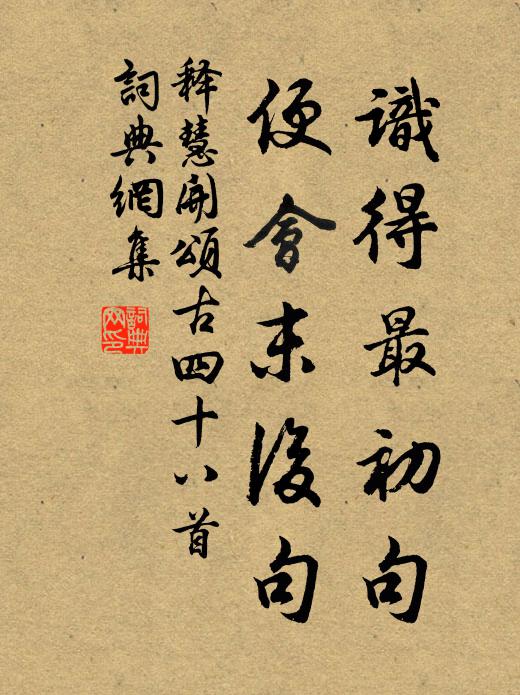 識得最初句
便會末後句
釋慧開頌古四十八首
詞典網集
詞典網印